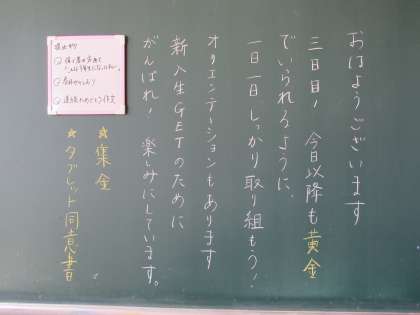 おはようございます
三日目！ 今日以降も黄金
でいられるように、
一日一日、しっかり取り組もう！
オリエンテーションもあります
新入生GETのために
がんばれ！ 楽しみにしています。
★集金
★タブレット同意書
提出物